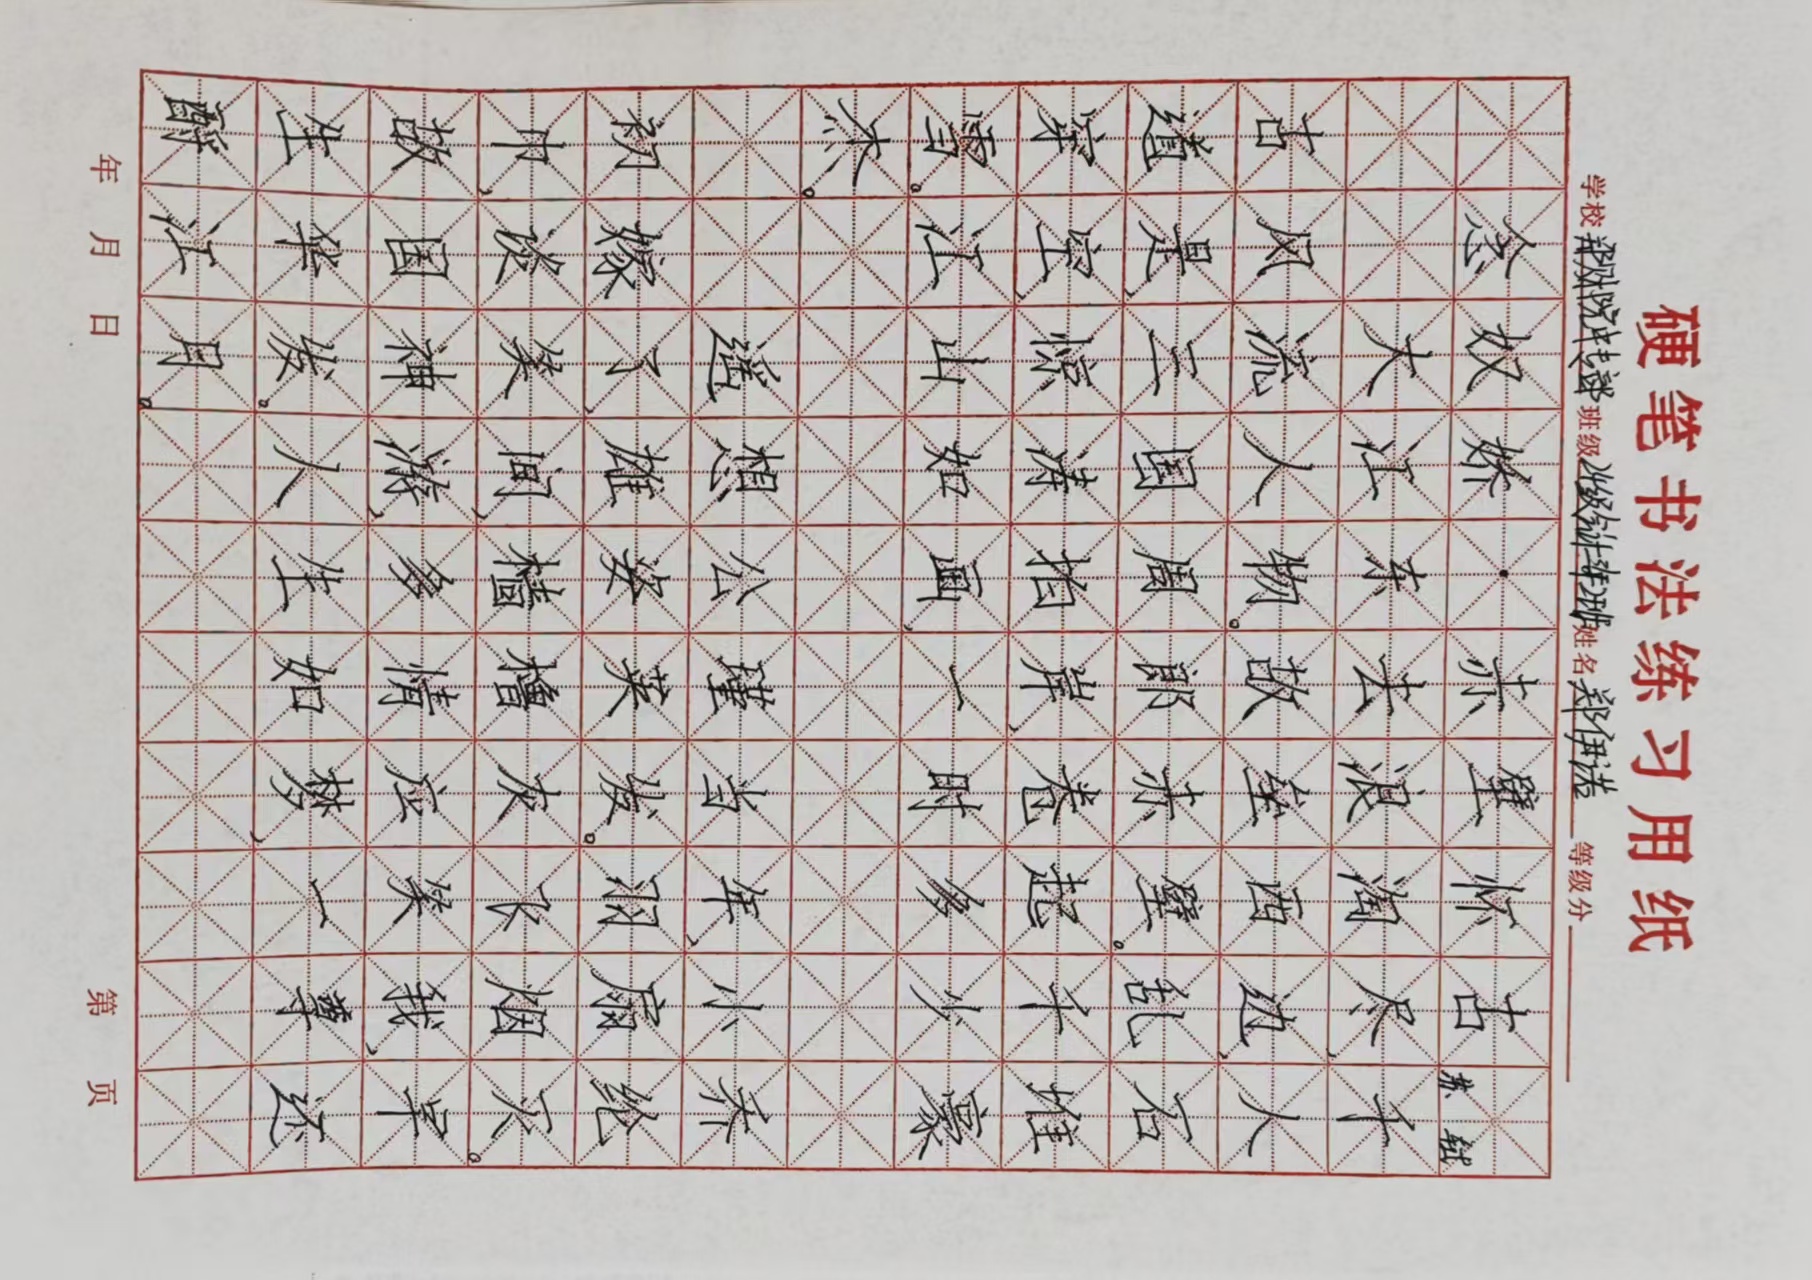 硬笔书法练习用纸
学校 班级 姓名 郑伊洁 等级分
念奴娇·赤壁怀古 苏轼
大江东去浪淘尽,千
古风流人物。故垒西边,人
道是,三国周郎赤壁。乱石
穿空,惊涛拍岸,卷起千堆
雪。江山如画,一时多少豪
杰。
遥想公瑾当年,小乔
初嫁了,雄姿英发。羽扇纶
巾,谈笑间,樯橹灰飞烟灭。
故国神游,多情应笑我,早
生华发。人生如梦,一尊还
酹江月。
年 月 日 第 页